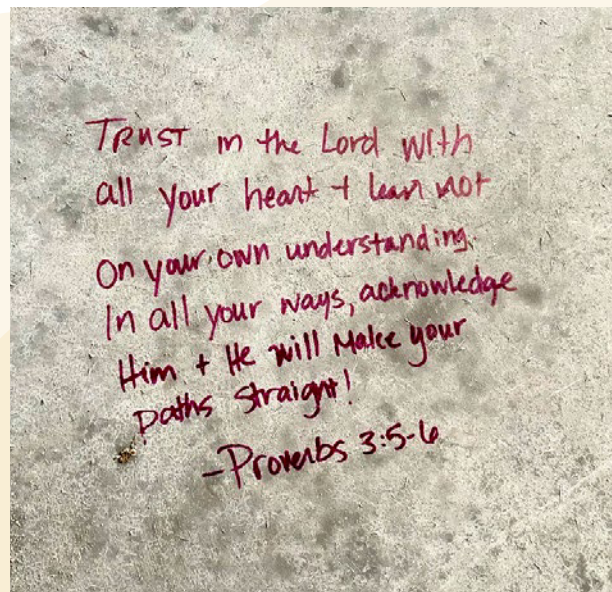 TRUST in the Lord with
all your heart + lean not
On your own understanding.
In all your ways, acknowledge
Him + He will Make your
paths straight!
-Proverbs 3:5-6